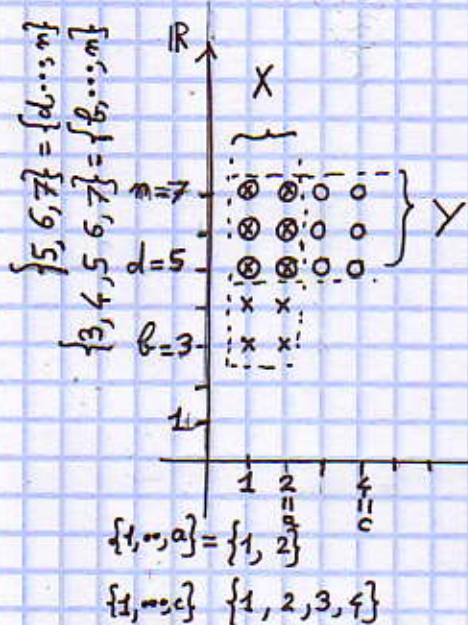 {5, 6, 7} = {d,...,n}
{3, 4, 5, 6, 7} = {b,...,n}
ℝ
X
n=7
d=5
b=3
1
Y
1 2 4
= =
a c
{1,...,a} = {1, 2}
{1,...,c} {1, 2, 3, 4}